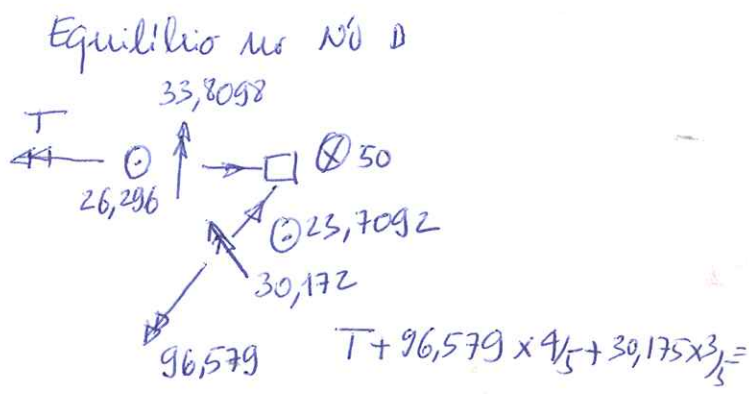 Equilíbrio no Nó D
33,8098
T
50
26,296
23,7092
30,172
96,579
T + 96,579 x 4/5 + 30,175 x 3/5 =